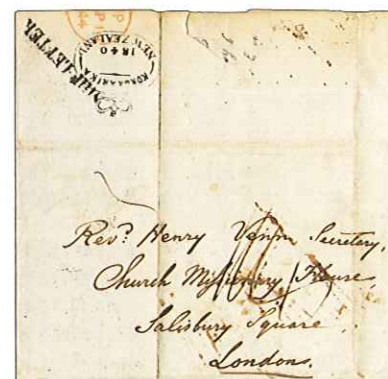 SHIP LETTER
KORORARIKA
1840
NEW ZEALAND
Revd. Henry Venn Secretary,
Church Missionary House,
Salisbury Square,
London.